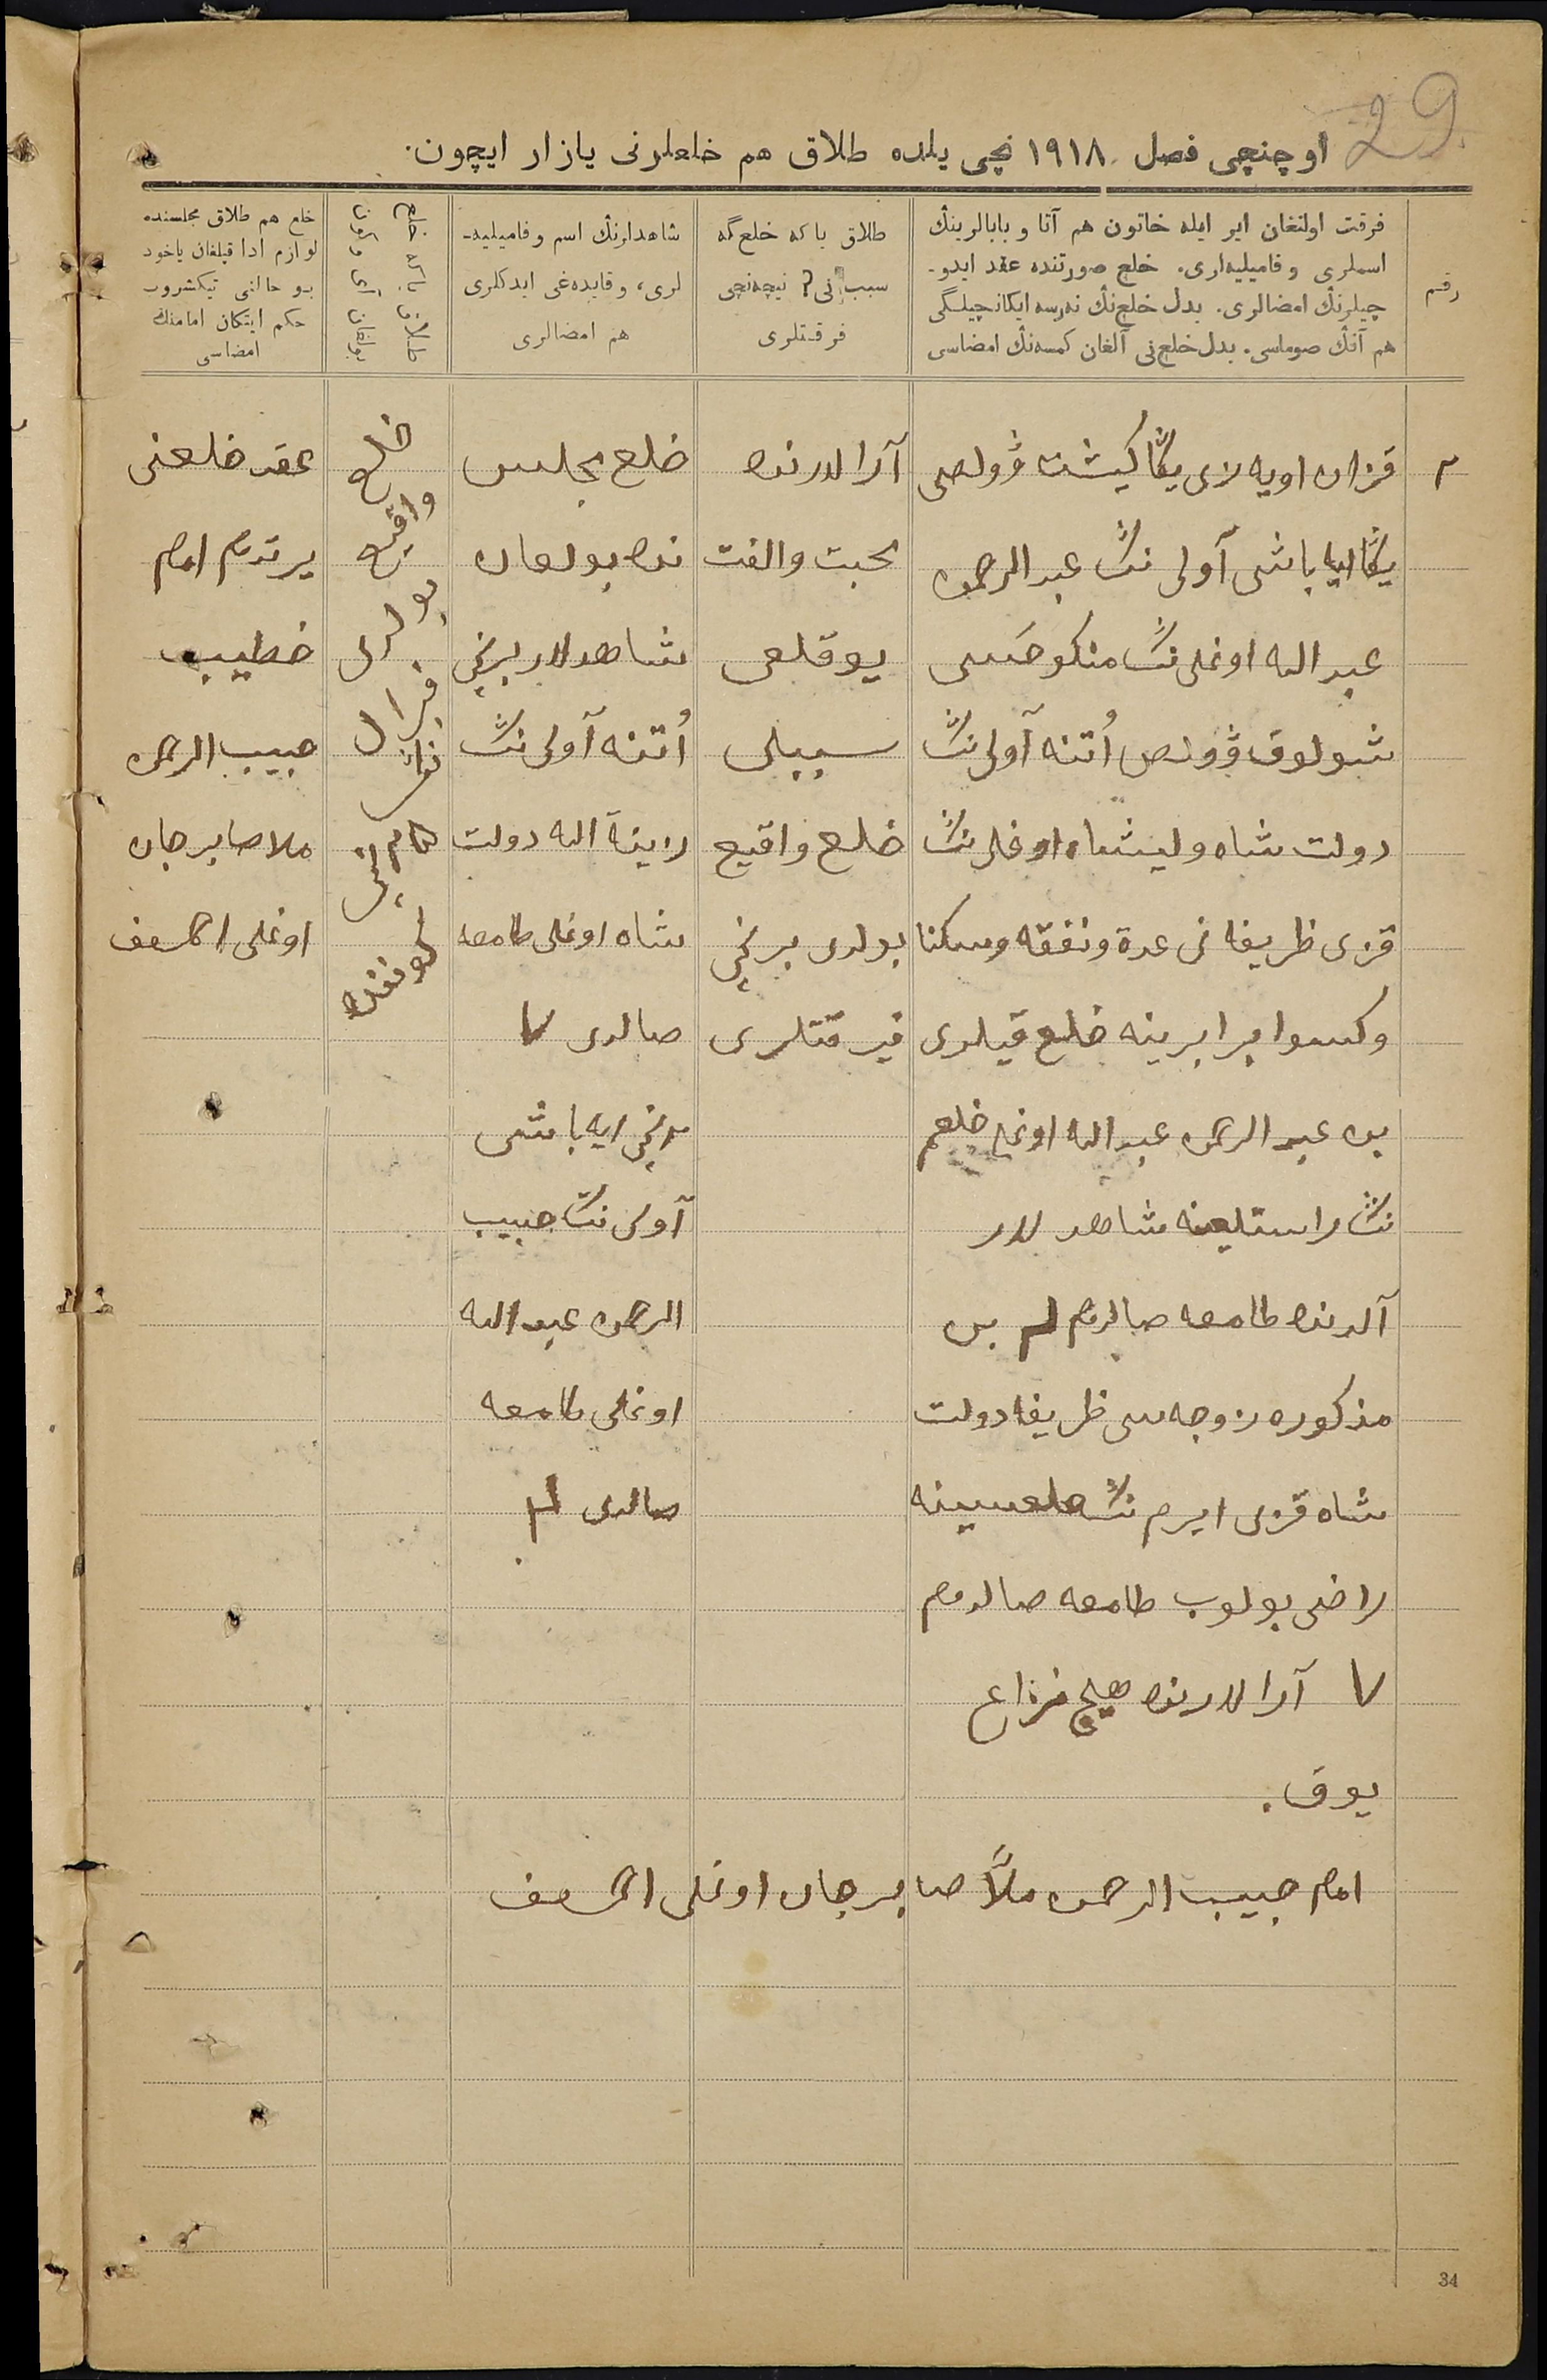 29
اوچنچی فصل ۱۹۱۸ نچی یلده طلاق هم خلعلرنی یازار ایچون.
رقم
فرقت اولنغان ایر ایله خاتون هم آتا و بابالرینڭ
اسملری و فامیلیه‌لری. خلع صورتنده عقد ایدو-
چیلرنڭ امضالری. بدل خلع‌نڭ نه‌رسه ایکانچیلگی
هم آنڭ صوماسی. بدل خلع‌نی آلغان کمسه‌نڭ امضاسی
طلاق یا که خلع گه
سبب نی؟ نیچه‌نچی
فرقتلری
شاهدلرنڭ اسم و فامیلیه-
لری، و قایده‌غی ایدکلری
هم امضالری
طلاق یا که خلع
بولغان
خلع هم طلاق مجلسنده
لوازم ادا قیلغان یاخود
بو حالنی تیکشروب
حکم ایتکان امامنڭ
امضاسی
۲
قزان اویه‌زی یڭاکیشت ڤولصی
یڭا ایه باشی آولی نڭ عبد الرحمن
عبد الله اوغلی نڭ منکوحه‌سی
شبولوق ڤولص اُتنه آولی نڭ
دولت شاه ولیشاه اوغلی نڭ
قزی ظریفه نی عدة و نفقه و سکنا
و کسوا برابرینه خلع قیلدی
بن عبد الرحمن عبد الله اوغلی خلعم
نڭ راستلیغنه شاهد لار
آلدنده طامغه صالدم
مذکوره زوجه‌سی ظریفه دولت
شاه قزی ایرم نڭ خلعسینه
راضی بولوب طامغه صالدم
آرالارنده هیچ نزاع
یوق.
آرالارنده
محبت و الفت
یوقلغی
سببلی
خلع واقیع
بولدی برنچی
فیرقتلری
خلع مجلس
نده بولغان
شاهدلار برنچی
اُتنه آولی نڭ
زینة الله دولت
شاه اوغلی طامغه
صالدی
ایه باشی
آولی نڭ حبیب
الرحمن عبد الله
اوغلی طامغه
صالدی
خلع
واقیع
بولدی
فیرال
نڭ
کوننده
عقد خلعنی
یرتدم امام
خطیب
حبیب الرحمن
ملا صابرجان
اوغلی
امام حبیب الرحمن ملاّ صابرجان اوغلی
34